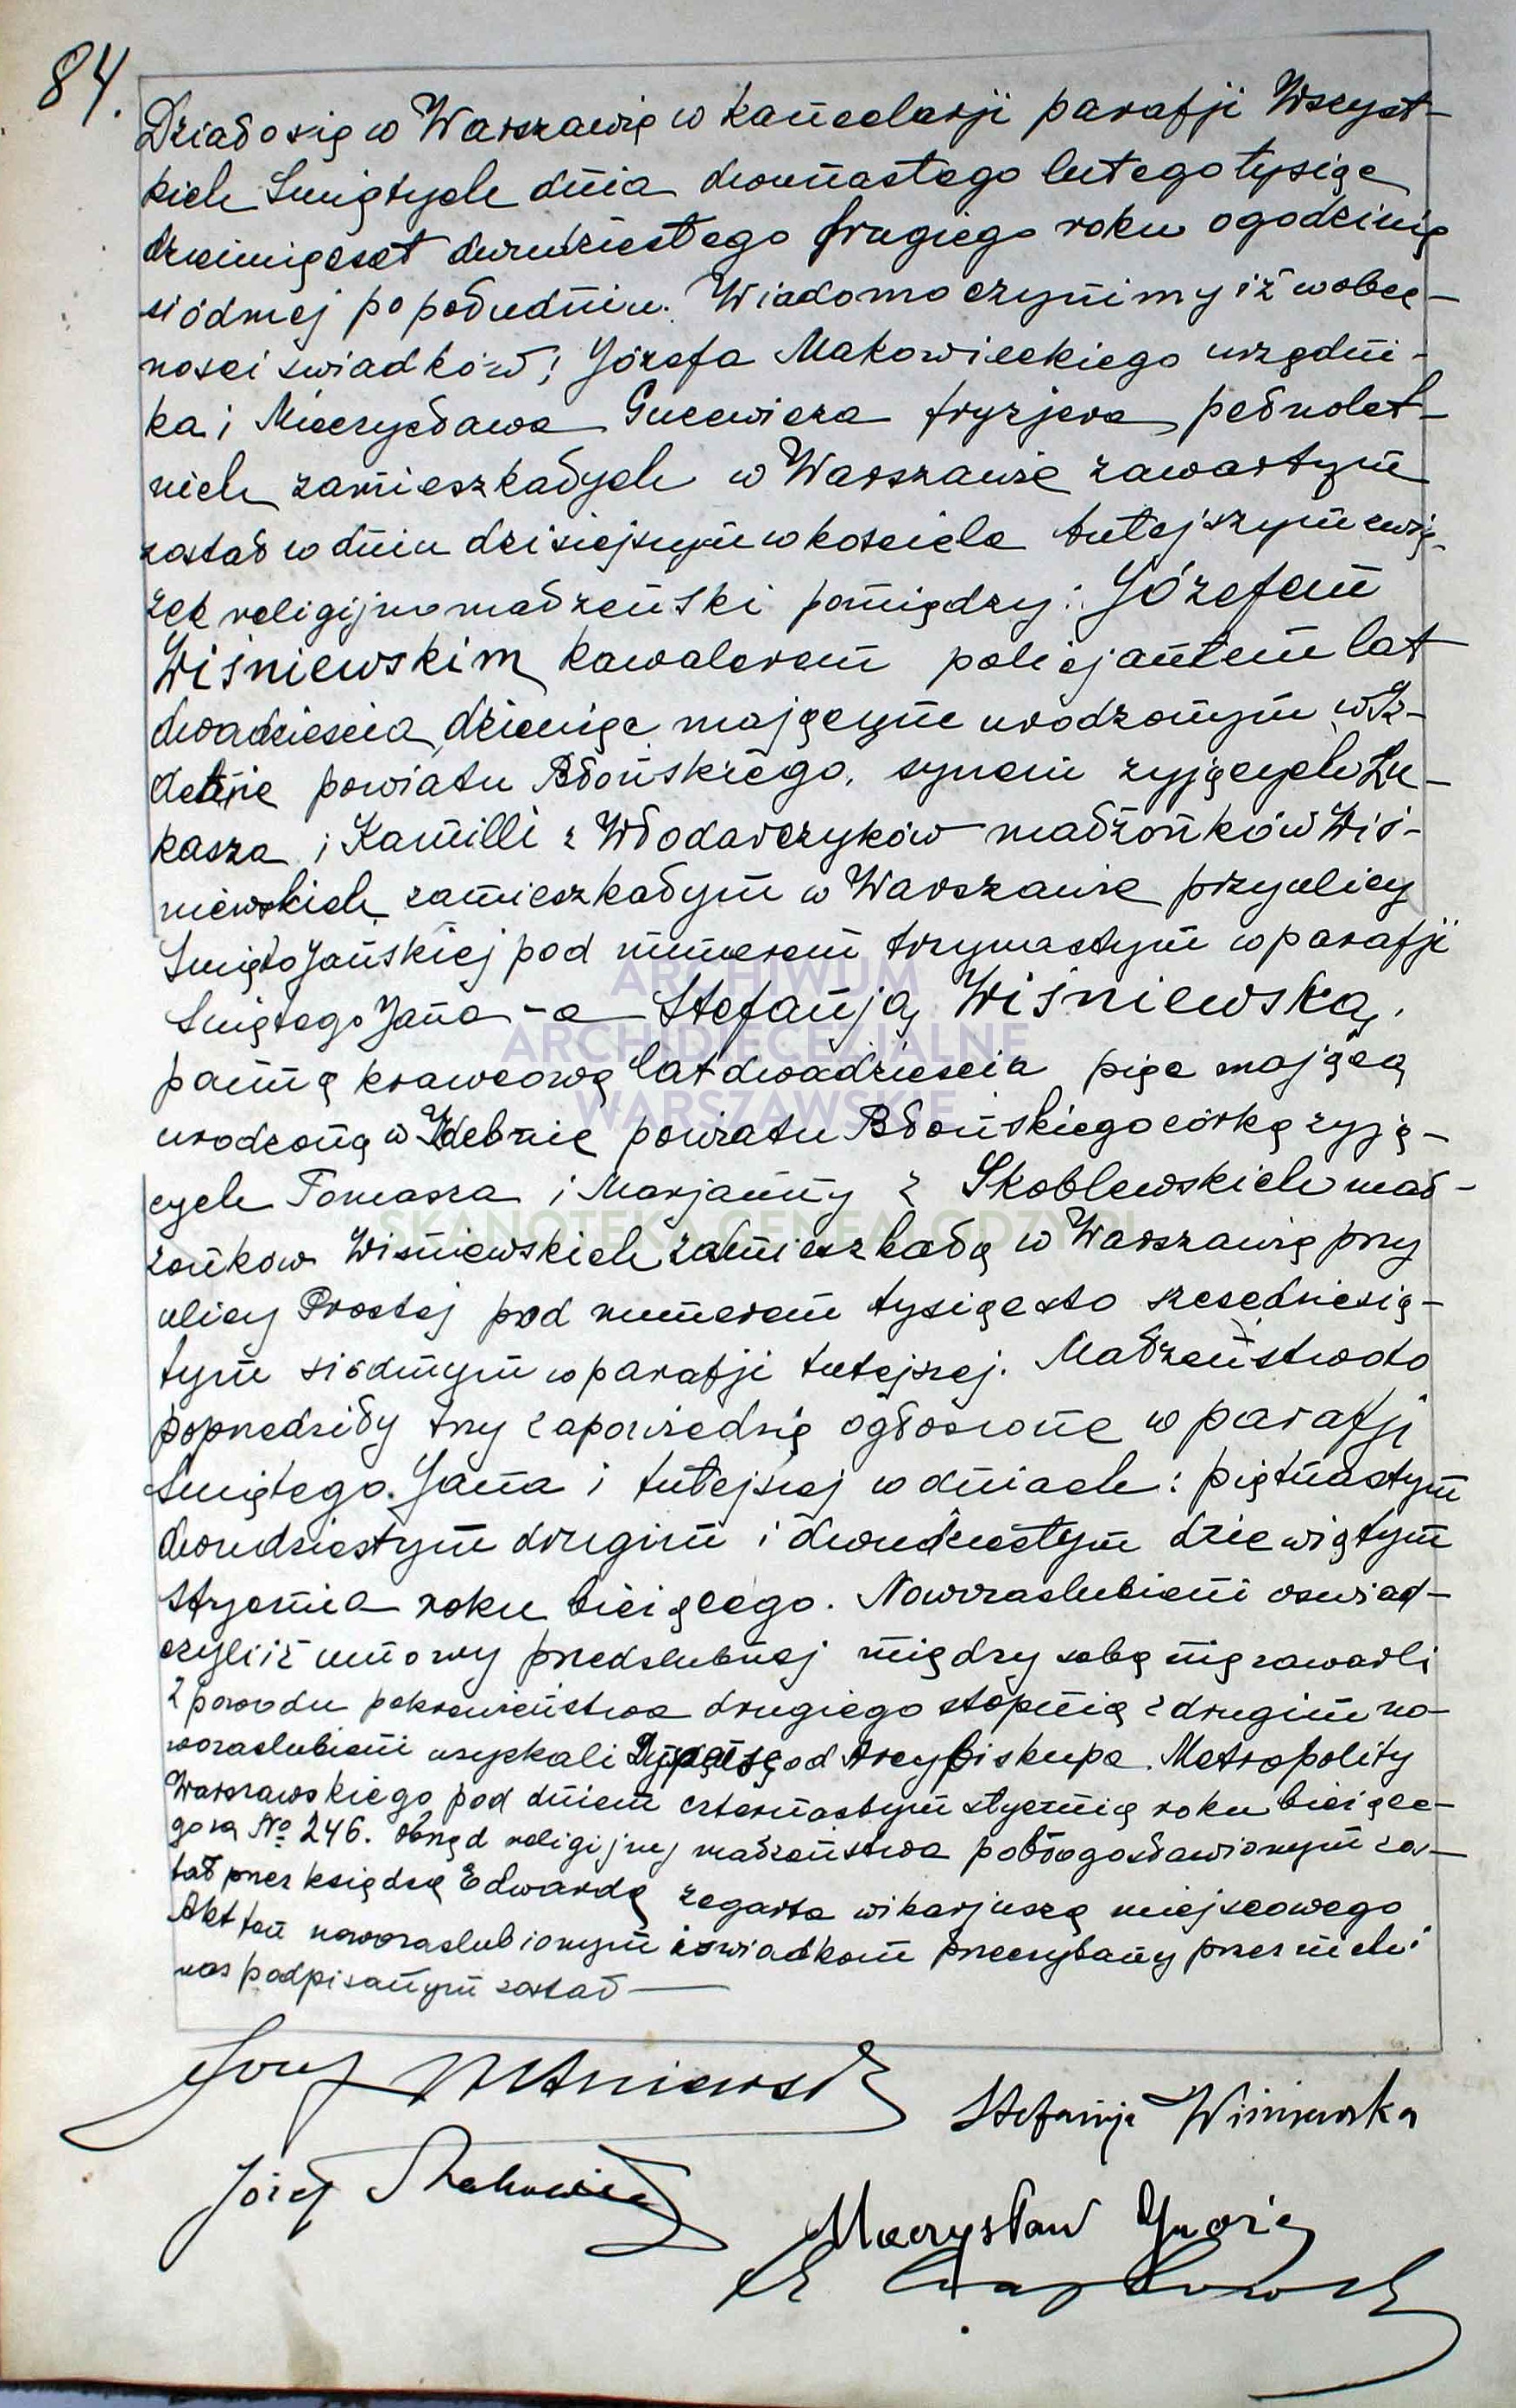 84.
Działo się w Warszawie w kancelarji parafji Wszyst-
kich Swiętych dnia dwunastego lutego tysiąc
dziewięcset dwudziestego drugiego roku o godzinie
siódmej po południu. Wiadomo czynimy iż w obec-
nosci swiadków: Józefa Makowieckiego urzędni-
ka i Mieczysława Gucewicza fryzjera pełnolet-
nich zamieszkałych w Warszawie zawartym
został w dniu dzisiejszym w kosciele tutejszym zwią-
zek religijno małżeński pomiędzy: Józefem
Wiśniewskim kawalerem policjantem lat
dwadziescia dziewięc mającym urodzonym w Iz-
debnie powiatu Błońskiego, synem zyjących Łu-
kasza i Kamilli z Włodarczyków małżonków Wiś-
niewskich zamieszkałym w Warszawie przy ulicy
Swięto Jańskiej pod numerem trzynastym w parafji
Swiętego Jana - a Stefanją Wiśniewską,
panną krawcową lat dwadziescia pięc mającą
urodzoną w Izdebnie powiatu Błońskiego córką zyją-
cych Tomasza i Marjanny z Skoblewskich mał-
żonkow Wiśniewskich zamieszkałą w Warszawie przy
ulicy Prostej pod numerem tysiąc sto szescdziesią-
tym siódmym w parafji tutejszej. Małżeństwo to
poprzedziły trzy zapowiedzie ogłoszone w parafji
Swiętego Jana i tutejszej w dniach: piętnastym
dwudziestym drugim i dwudziestym dziewiątym
stycznia roku bieiącego. Nowozaslubieni oswiad-
czyli iż umowy przedslubnej między sobą nie zawarli
z powodu pokrewieństwa drugiego stopnia z drugim no-
wozaslubieni uzyskali Dyspensę od Arcybiskupa Metropolity
Warszawskiego pod dniem czternastym stycznia roku bieiące-
go za № 246. Obrzęd religijny małżeństwa pobłogosławionym zos-
tał przez księdza Edwarda Zegarta wikarjusza miejscowego
Akt ten nowozaslubionym i swiadkom przeczytany przez nich i
nas podpisanym został
ARCHIWUM
ARCHIDIECEZJALNE
WARSZAWSKIE
SKANOTEKA.GENEALODZY.PL
Józef Wiśniewski
Stefanja Wiśniewska
Józef
Mieczysław